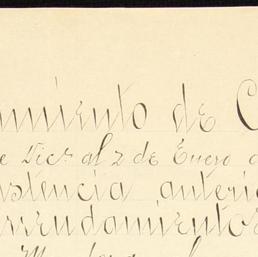 amiento de C
e Dicª al 2 de Enero d
istencia anteri
arrendamientos